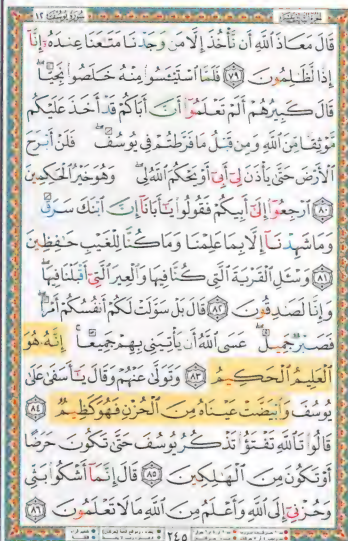 سورة يوسف ١٢
قال معاذ الله أن نأخذ إلا من وجدنا متعنا عنده إنا
إذا لظلمون ٧٩ فلما استيئسوا منه خلصوا نجيا
قال كبيرهم ألم تعلموا أن أباكم قد أخذ عليكم
موثقا من الله ومن قبل ما فرطتم في يوسف فلن أبرح
الأرض حتى يأذن لي أبي أو يحكم الله لي وهو خير الحكمين
٨٠ ارجعوا إلى أبيكم فقولوا يأبانا إن ابنك سرق
وما شهدنا إلا بما علمنا وما كنا للغيب حفظين
٨١ وسئل القرية التي كنا فيها والعير التي أقبلنا فيها
وإنا لصدقون ٨٢ قال بل سولت لكم أنفسكم أمرا
فصبر جميل عسى الله أن يأتيني بهم جميعا إنه هو
العليم الحكيم ٨٣ وتولى عنهم وقال يأسفى على
يوسف وابيضت عيناه من الحزن فهو كظيم ٨٤
قالوا تالله تفتؤا تذكر يوسف حتى تكون حرضا
أو تكون من الهلكين ٨٥ قال إنما أشكوا بثي
وحزني إلى الله وأعلم من الله ما لا تعلمون ٨٦
٢٤٥